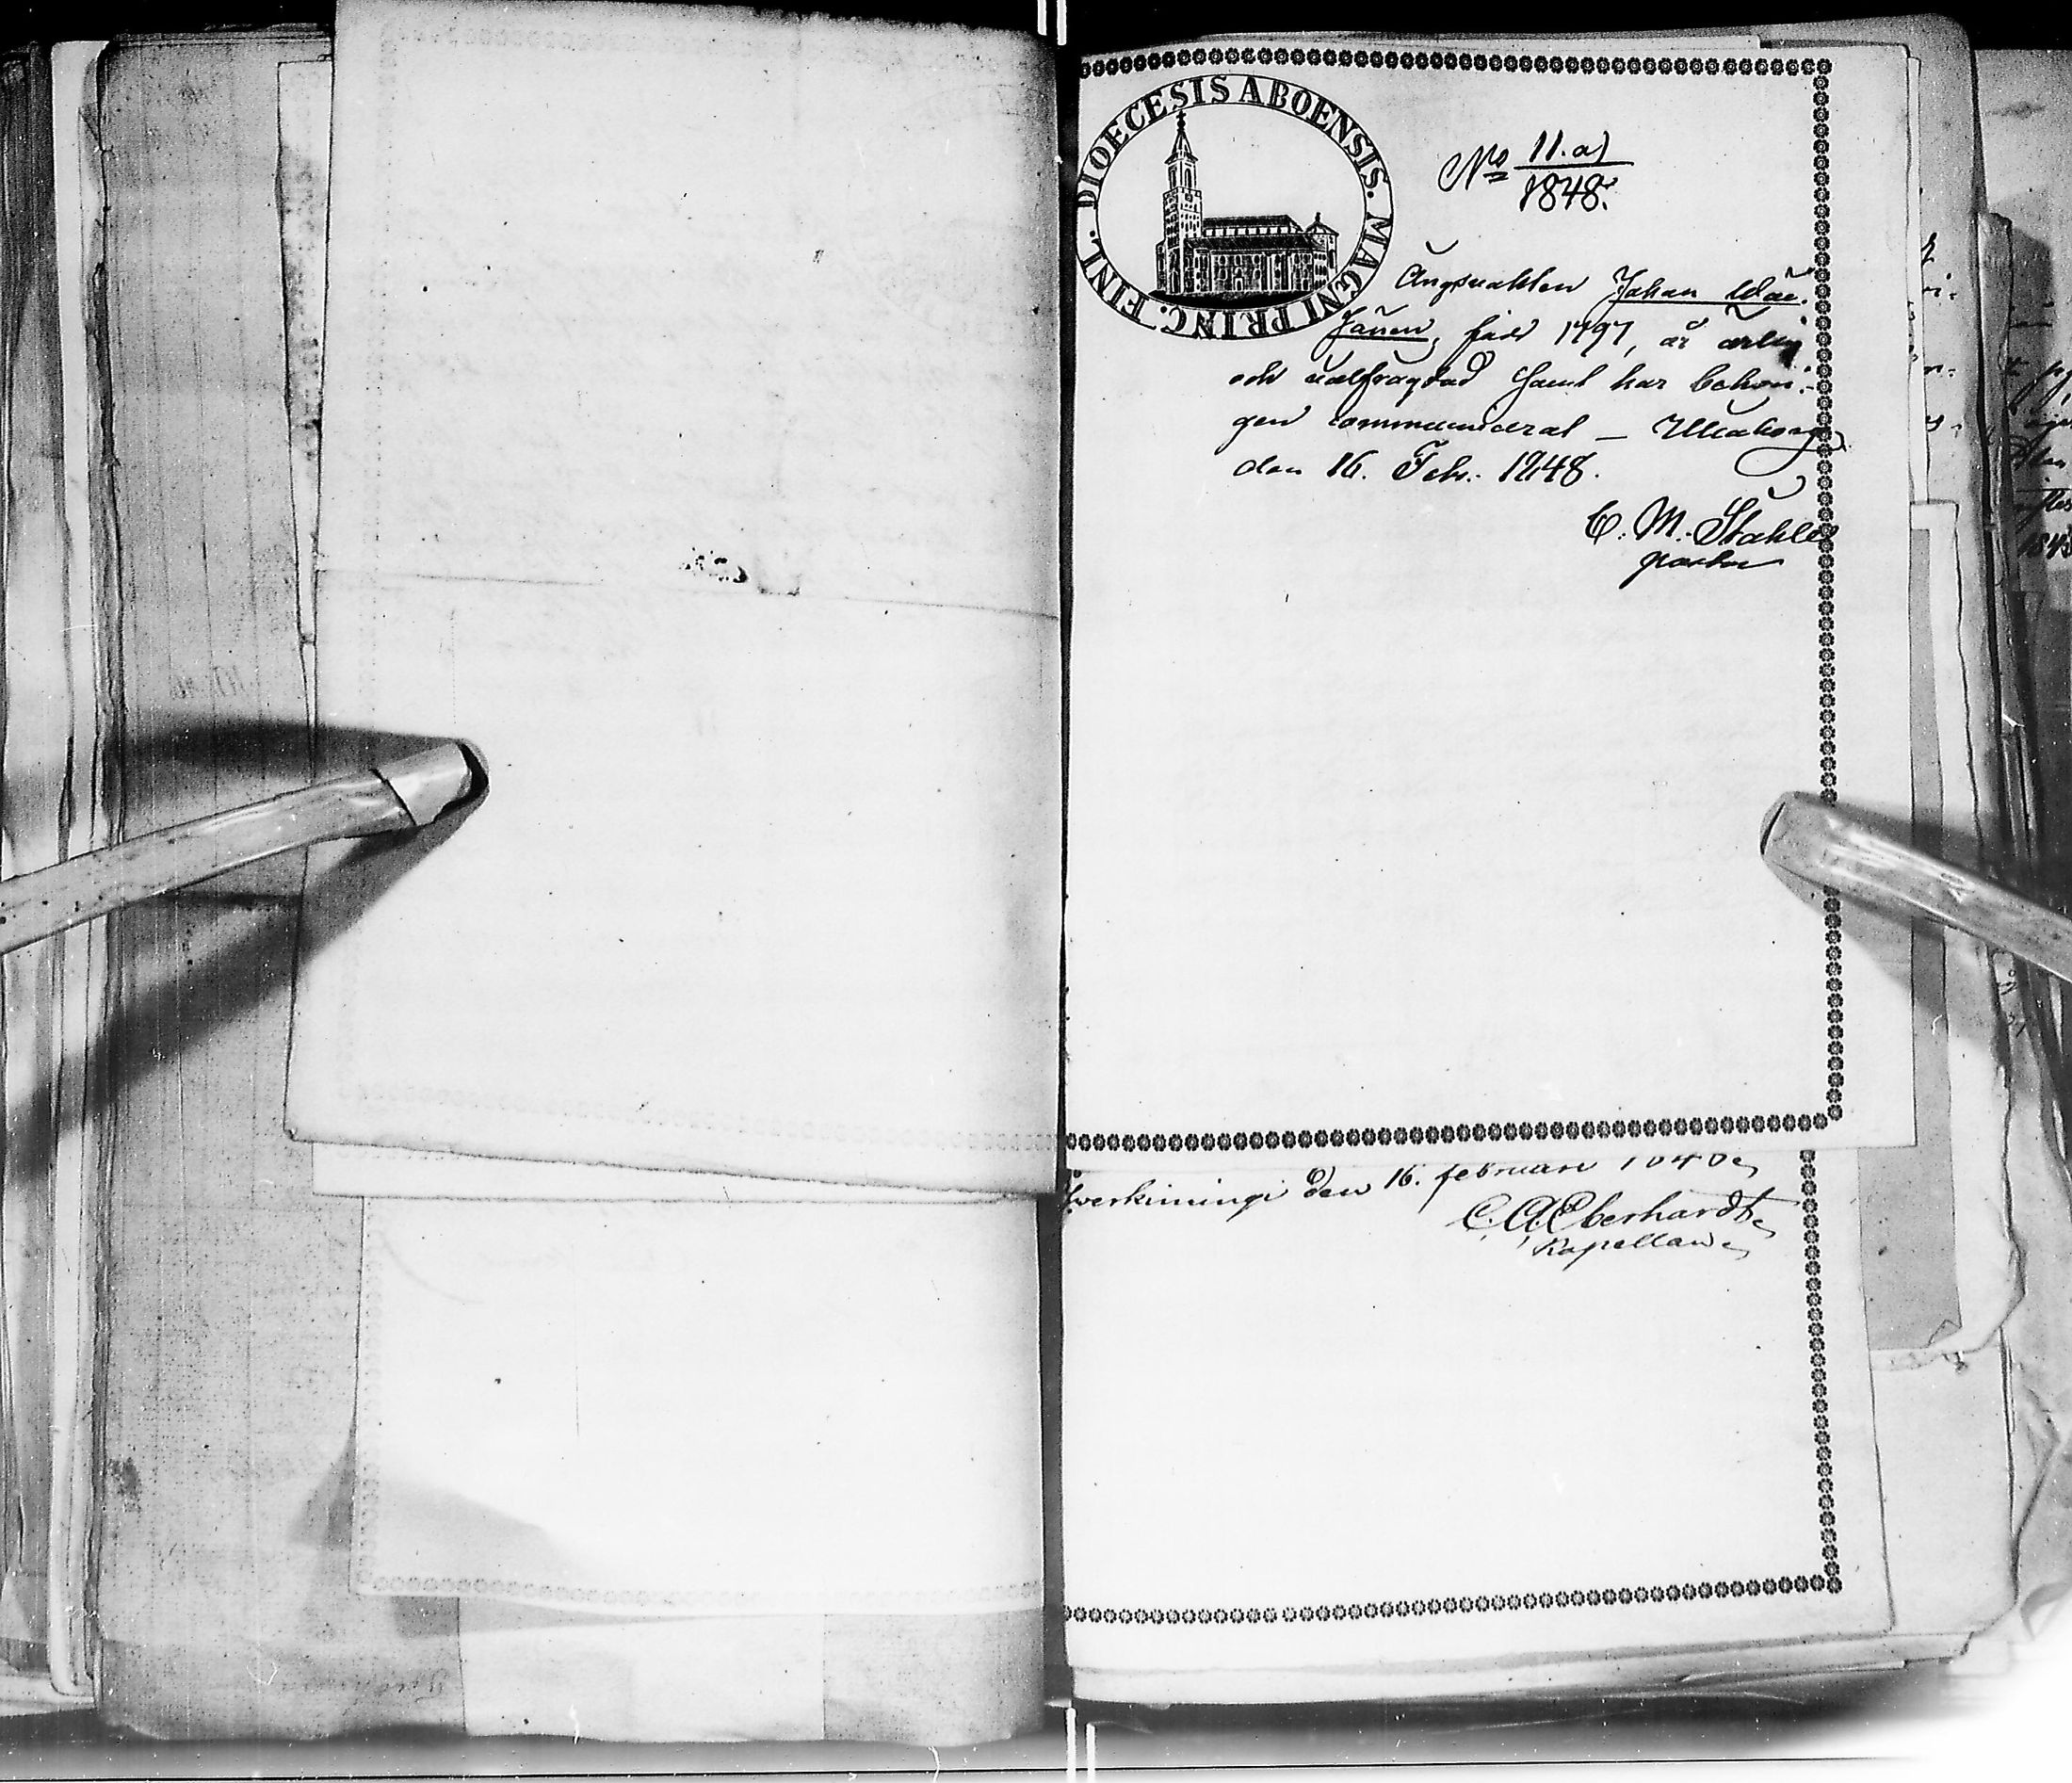 DIOECESIS ABOENSIS. MAGNI PRINC. FINL.
No 11.a)
1848.
Ångvakten Johan Wäi-
sänen, född 1797, är ärlig
och välfrägdad samt har behöri-
gen communicerat — Uleaborg
den 16. Febr. 1848.
C. M. Ståhle
pastor
den 16. februari 1848
C. A. Eberhardt
Kapellan